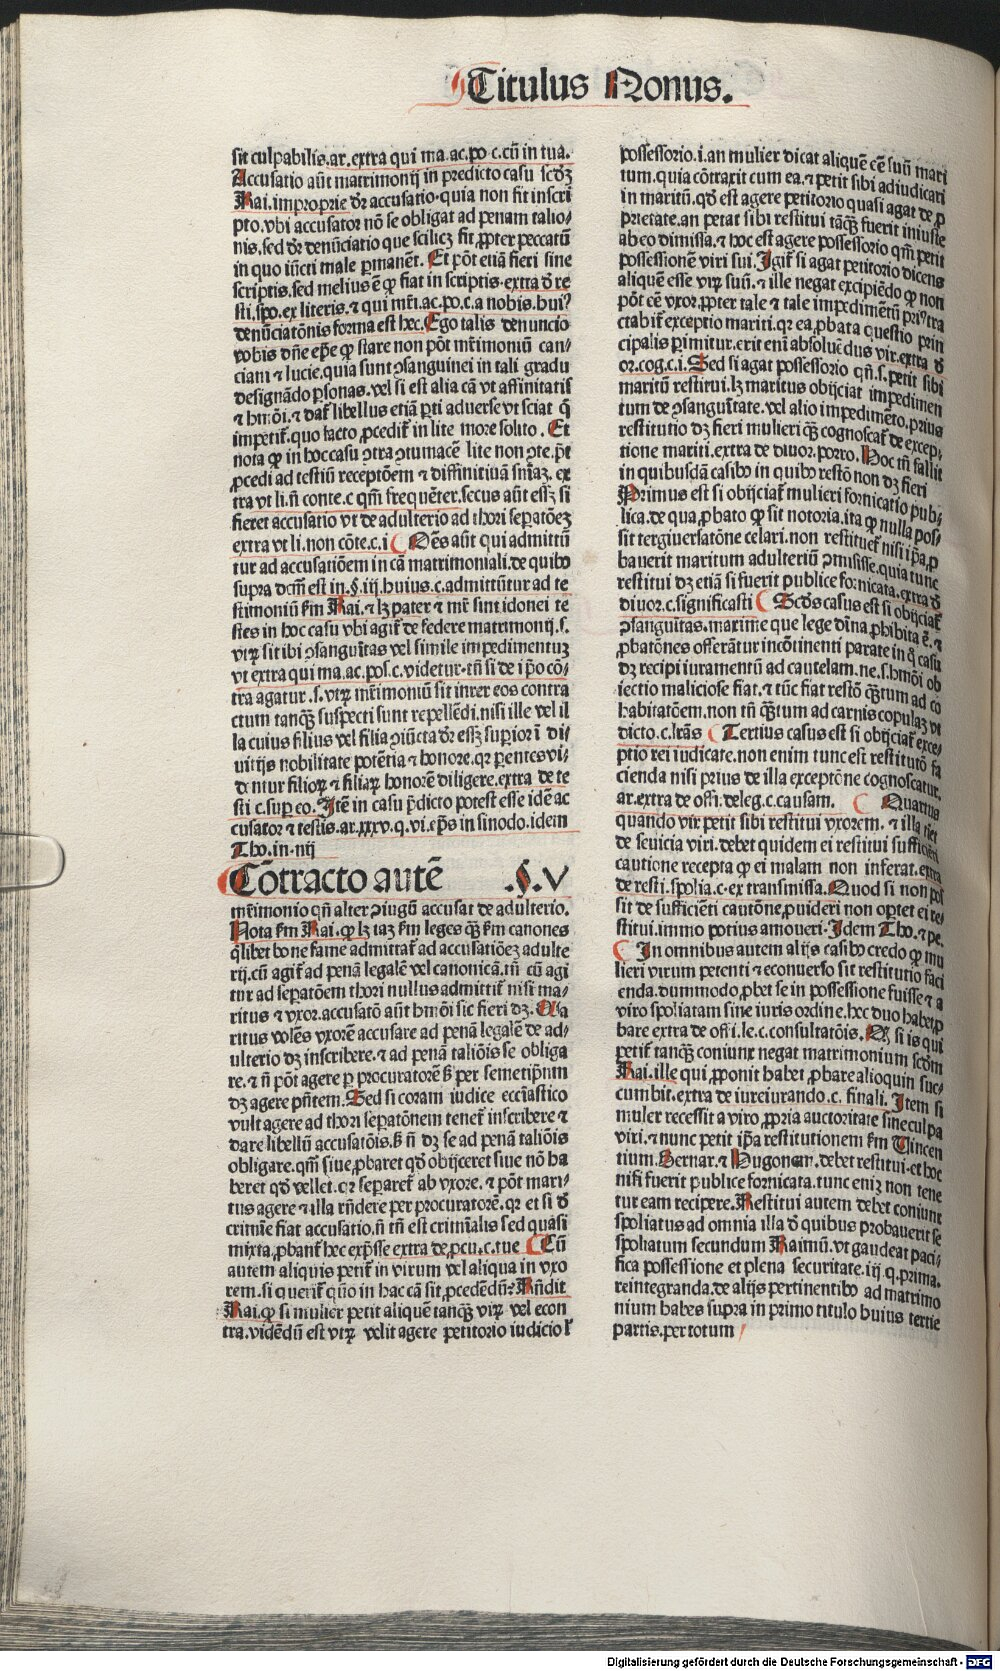 Titulus Nonus.
sit culpabilis.ar.extra qui ma.ac.po c.cū in tua.
Accusatio aūt matrimonij in predicto casu scdꝫ
Rai.improprie dr̄ accusatio.quia non fit inscri
pto.vbi accusator nō se obligat ad penam talio-
nis.sed dr̄ denūciatio que scilicꝫ fit ꝓpter peccatū
in quo iūcti male ꝑmanēt. Et pōt etiā fieri sine
scriptis.sed melius ē ꝙ fiat in scriptis.extra ð re
sti.spo.ex literis.⁊ qui mr̄i.ac.po.c.a nobis.huiꝰ
denūciatōnis forma est hec.Ego talis denuncio
vobis dn̄e ep̄e ꝙ stare non pōt mr̄imoniū can-
ciam ⁊ lucie.quia sunt ꝯsanguinei in tali gradu
designādo ꝑsonas.vel si est alia cā vt affinitatis
⁊ hmōi.⁊ dat̄ libellus etiā ꝑti aduerse vt sciat q̄
impetit̄.quo facto ꝓcedit̄ in lite more solito. Et
nota ꝙ in hoc casu ꝯtra ꝯtumacē lite non ꝯte.p̄t
ꝓcedi ad testiū receptōem ⁊ diffinitiuā sniaꝫ. ex
tra vt li.n̄ conte.c qm̄ frequēter.secus aūt essꝫ si
fieret accusatio vt de adulterio ad thori seꝑatōeꝫ
extra vt li.non cōte.c.i Oēs aūt qui admittū
tur ad accusatiōem in cā matrimoniali.de quibꝰ
supra dcm̄ est in.§.iij.huius.c.admittūtur ad te
stimoniū km̄ Rai.⁊ lꝫ pater ⁊ mr̄ sint idonei te
stes in hoc casu vbi agit̄ de federe matrimonij.s.
vtꝝ sit ibi ꝯsanguītas vel simile impedimentuꝫ
vt extra qui ma.ac.pos.c.videtur.tn̄ si de ip̄o cō-
tra agatur .s.vtꝝ mr̄imoniū sit inter eos contra
ctum tanqꝫ suspecti sunt repellēdi.nisi ille vel il
la cuius filius vel filia ꝯiūcta dr̄ essꝫ superior ī di-
uitijs nobilitate potētia ⁊ honore.qr parentes vi-
dentur filioꝝ ⁊ filiaꝝ honorē diligere.extra de te
sti c.suꝑ eo.Itē in casu p̄dicto potest esse idē ac
cusator ⁊ testis.ar.xxxv.q.vi.ep̄s in sinodo.idem
Tho.in.iiij
Cōtracto autē .§.V
mr̄imonio qn̄ alter ꝯiugū accusat de adulterio.
Nota km̄ Rai.ꝙ lꝫ taꝫ km̄ leges qꝫ km̄ canones
q̄libet bone fame admittat̄ ad accusatiōeꝫ adulte
rij.cū agit̄ ad penā legalē vel canonicā.tn̄ cū agi
tur ad seꝑatōem thori nullus admittit̄ nisi ma-
ritus ⁊ vxor.accusatō aūt hmōi sic fieri dꝫ. Ma
ritus volēs vxorē accusare ad penā legalē de ad-
ulterio dꝫ inscribere.⁊ ad penā taliōis se obliga
re.⁊ n̄ pōt agere ꝑ procuratorē ß per semetip̄um
dꝫ agere pn̄tem.Sed si coram iudice eccl̄iastico
vult agere ad thori seꝑatōnem tenet̄ inscribere ⁊
dare libellū accusatōis.ß n̄ dꝫ se ad penā taliōis
obligare.qm̄ siue ꝓbaret qð obijceret siue nō ha
beret qð vellet.qr seꝑaret̄ ab vxore.⁊ pōt mari-
tus agere ⁊ illa rn̄dere per procuratorē.qr et si ð
crimīe fiat accusatio.n̄ tn̄ est crimīalis sed quasi
mixta.ꝓbant̄ hec exp̄sse extra de.ꝓcu.c.tue Cū
autem aliquis petit̄ in virum vel aliqua in vxo
rem.si querit̄ quō in hac cā sit ꝓcedēdū? Rn̄dit
Rai.ꝙ si mulier petit aliquē tanqꝫ viꝝ vel econ
tra.vidēdū est vtꝝ velit agere petitorio iudicio ł
possessorio.i.an mulier dicat aliquē eē suū mari
tum.quia cōtraxit cum ea.⁊ petit sibi adiudicari
in maritū.qð est agere petitorio quasi agat de ꝓ
prietate.an petat sibi restitui tāqꝫ fuerit iniuste
ab eo dimissa.⁊ hoc est agere possessorio qm̄ petit
possessionē viri sui.Igit̄ si agat petitorio dicens
aliquē esse viꝝ suū.⁊ ille negat excipiēdo ꝙ non
pōt eē vxor.ꝓpter tale ⁊ tale impedimētū priꝰ tra
ctabit̄ exceptio mariti.qr ea ꝓbata questio prin
cipalis ꝑimitur.erit eni absoluēdus vir.extra ð
or.cog.c.i.Sed si agat possessorio qn̄.s.petit sibi
maritū restitui.lꝫ maritus obijciat impedimen
tum de ꝯsanguītate.vel alio impedimēto.prius
restitutio dꝫ fieri mulieri qꝫ cognoscat̄ de excep-
tione mariti.extra de diuor.porro. Hoc tn̄ fallit
in quibusdā casibꝰ in quibꝰ restō non dꝫ fieri
Primus est si obijciat̄ mulieri fornicatio pub-
lica.de qua ꝓbato ꝙ sit notoria.ita ꝙ nulla pos-
sit tergiuersatōne celari.non restituet̄ nisi ip̄a ꝓ
bauerit maritum adulteriū ꝯmisisse.quia tunc
restitui dꝫ etiā si fuerit publice fornicata.extra ð
diuor.c.significasti Scðs casus est si obijciat̄
ꝯsanguītas.maxime que lege diīna ꝓhibita ē.⁊
ꝓbatōnes offerātur incōtinenti parate in q̄ casu
dꝫ recipi iuramentū ad cautelam.ne.s.hmōi ob
iectio maliciose fiat.⁊ tūc fiat restō qꝫtum ad co
habitatōem.non tn̄ qꝫtum ad carnis copulaꝫ vt
dicto.c.lr̄as Tertius casus est si obijciat̄ exce-
ptio rei iudicate.non enim tunc est restitutō fa
cienda nisi prius de illa exceptōne cognoscatur.
ar.extra de offi.deleg.c.causam. Quartus
quando vir petit sibi restitui vxorem.⁊ illa ticet
de seuicia viri.debet quidem ei restitui sufficiēti
cautione recepta ꝙ ei malam non inferat.extra
de resti.spolia.c.ex transmissa.Quod si non pos
sit de sufficiēti cautōne ꝓuideri non oꝑtet ei re-
stitui.immo potius amoueri.Idem Tho.⁊ pe.
In omnibus autem alijs casibꝰ credo ꝙ mu
lieri virum petenti ⁊ econuerso sit restitutio faci
enda.dummodo ꝓbet se in possessione fuisse ⁊ a
viro spoliatam sine iuris ordine.hec duo habet ꝓ
bare extra de offi.le.c.consultatōis. Qꝫ si is qui
petit̄ tanqꝫ coniunx negat matrimonium scðm
Rai.ille qui ꝓponit habet ꝓbare alioquin suc-
cumbit.extra de iureiurando.c. finali. Item si
mulier recessit a viro ꝓpria auctoritate sine culpa
viri.⁊ nunc petit ip̄a restitutionem km̄ Uincen
tium.Bernar.⁊ Hugonem.debet restitui.et hoc
nisi fuerit publice fornicata.tunc enīꝫ non tene
tur eam recipere.Restitui autem debet coniunx
spoliatus ad omnia illa ð quibus probauerit se
spoliatum secundum Raimū.vt gaudeat paci-
fica possessione et plena securitate.iij q.prima.
reintegranda.de alijs pertinentibꝰ ad matrimo
nium habes supra in primo titulo huius tertie
partis.per totum
Digitalisierung gefördert durch die Deutsche Forschungsgemeinschaft - DFG